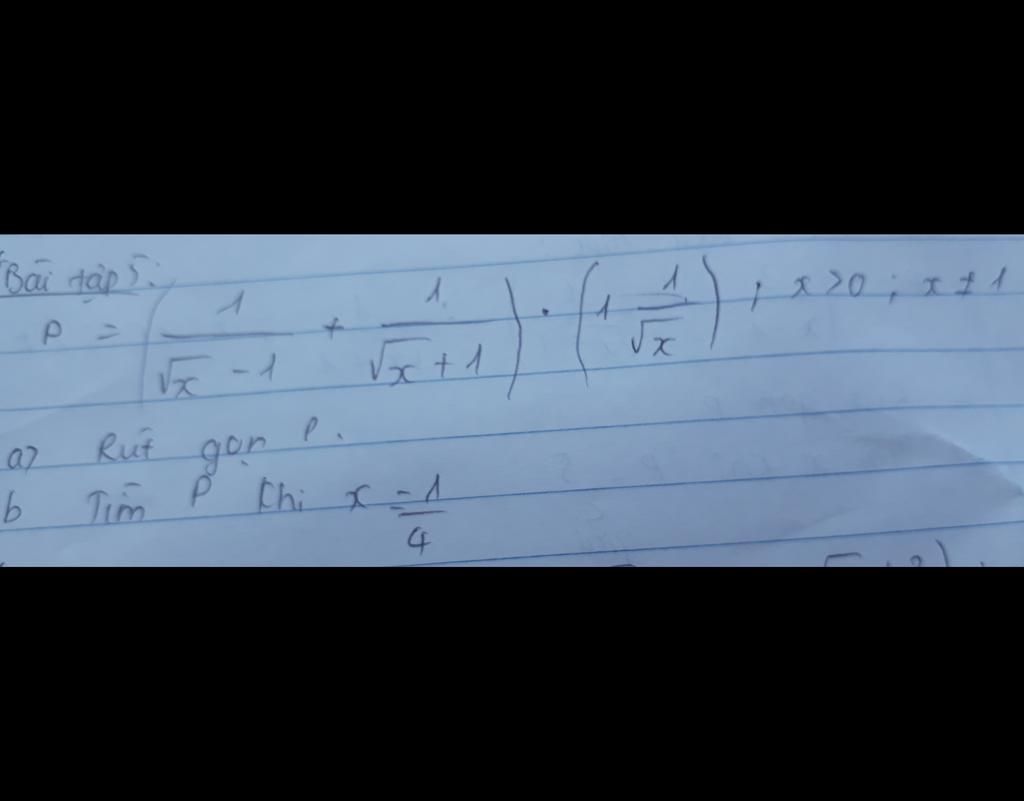 Bài tập 5:
P = ( 1/(√x - 1) + 1/(√x + 1) ) . ( 1 - 1/√x ) ; x > 0 ; x ≠ 1
a) Rút gọn P.
b Tìm P khi x = 1/4